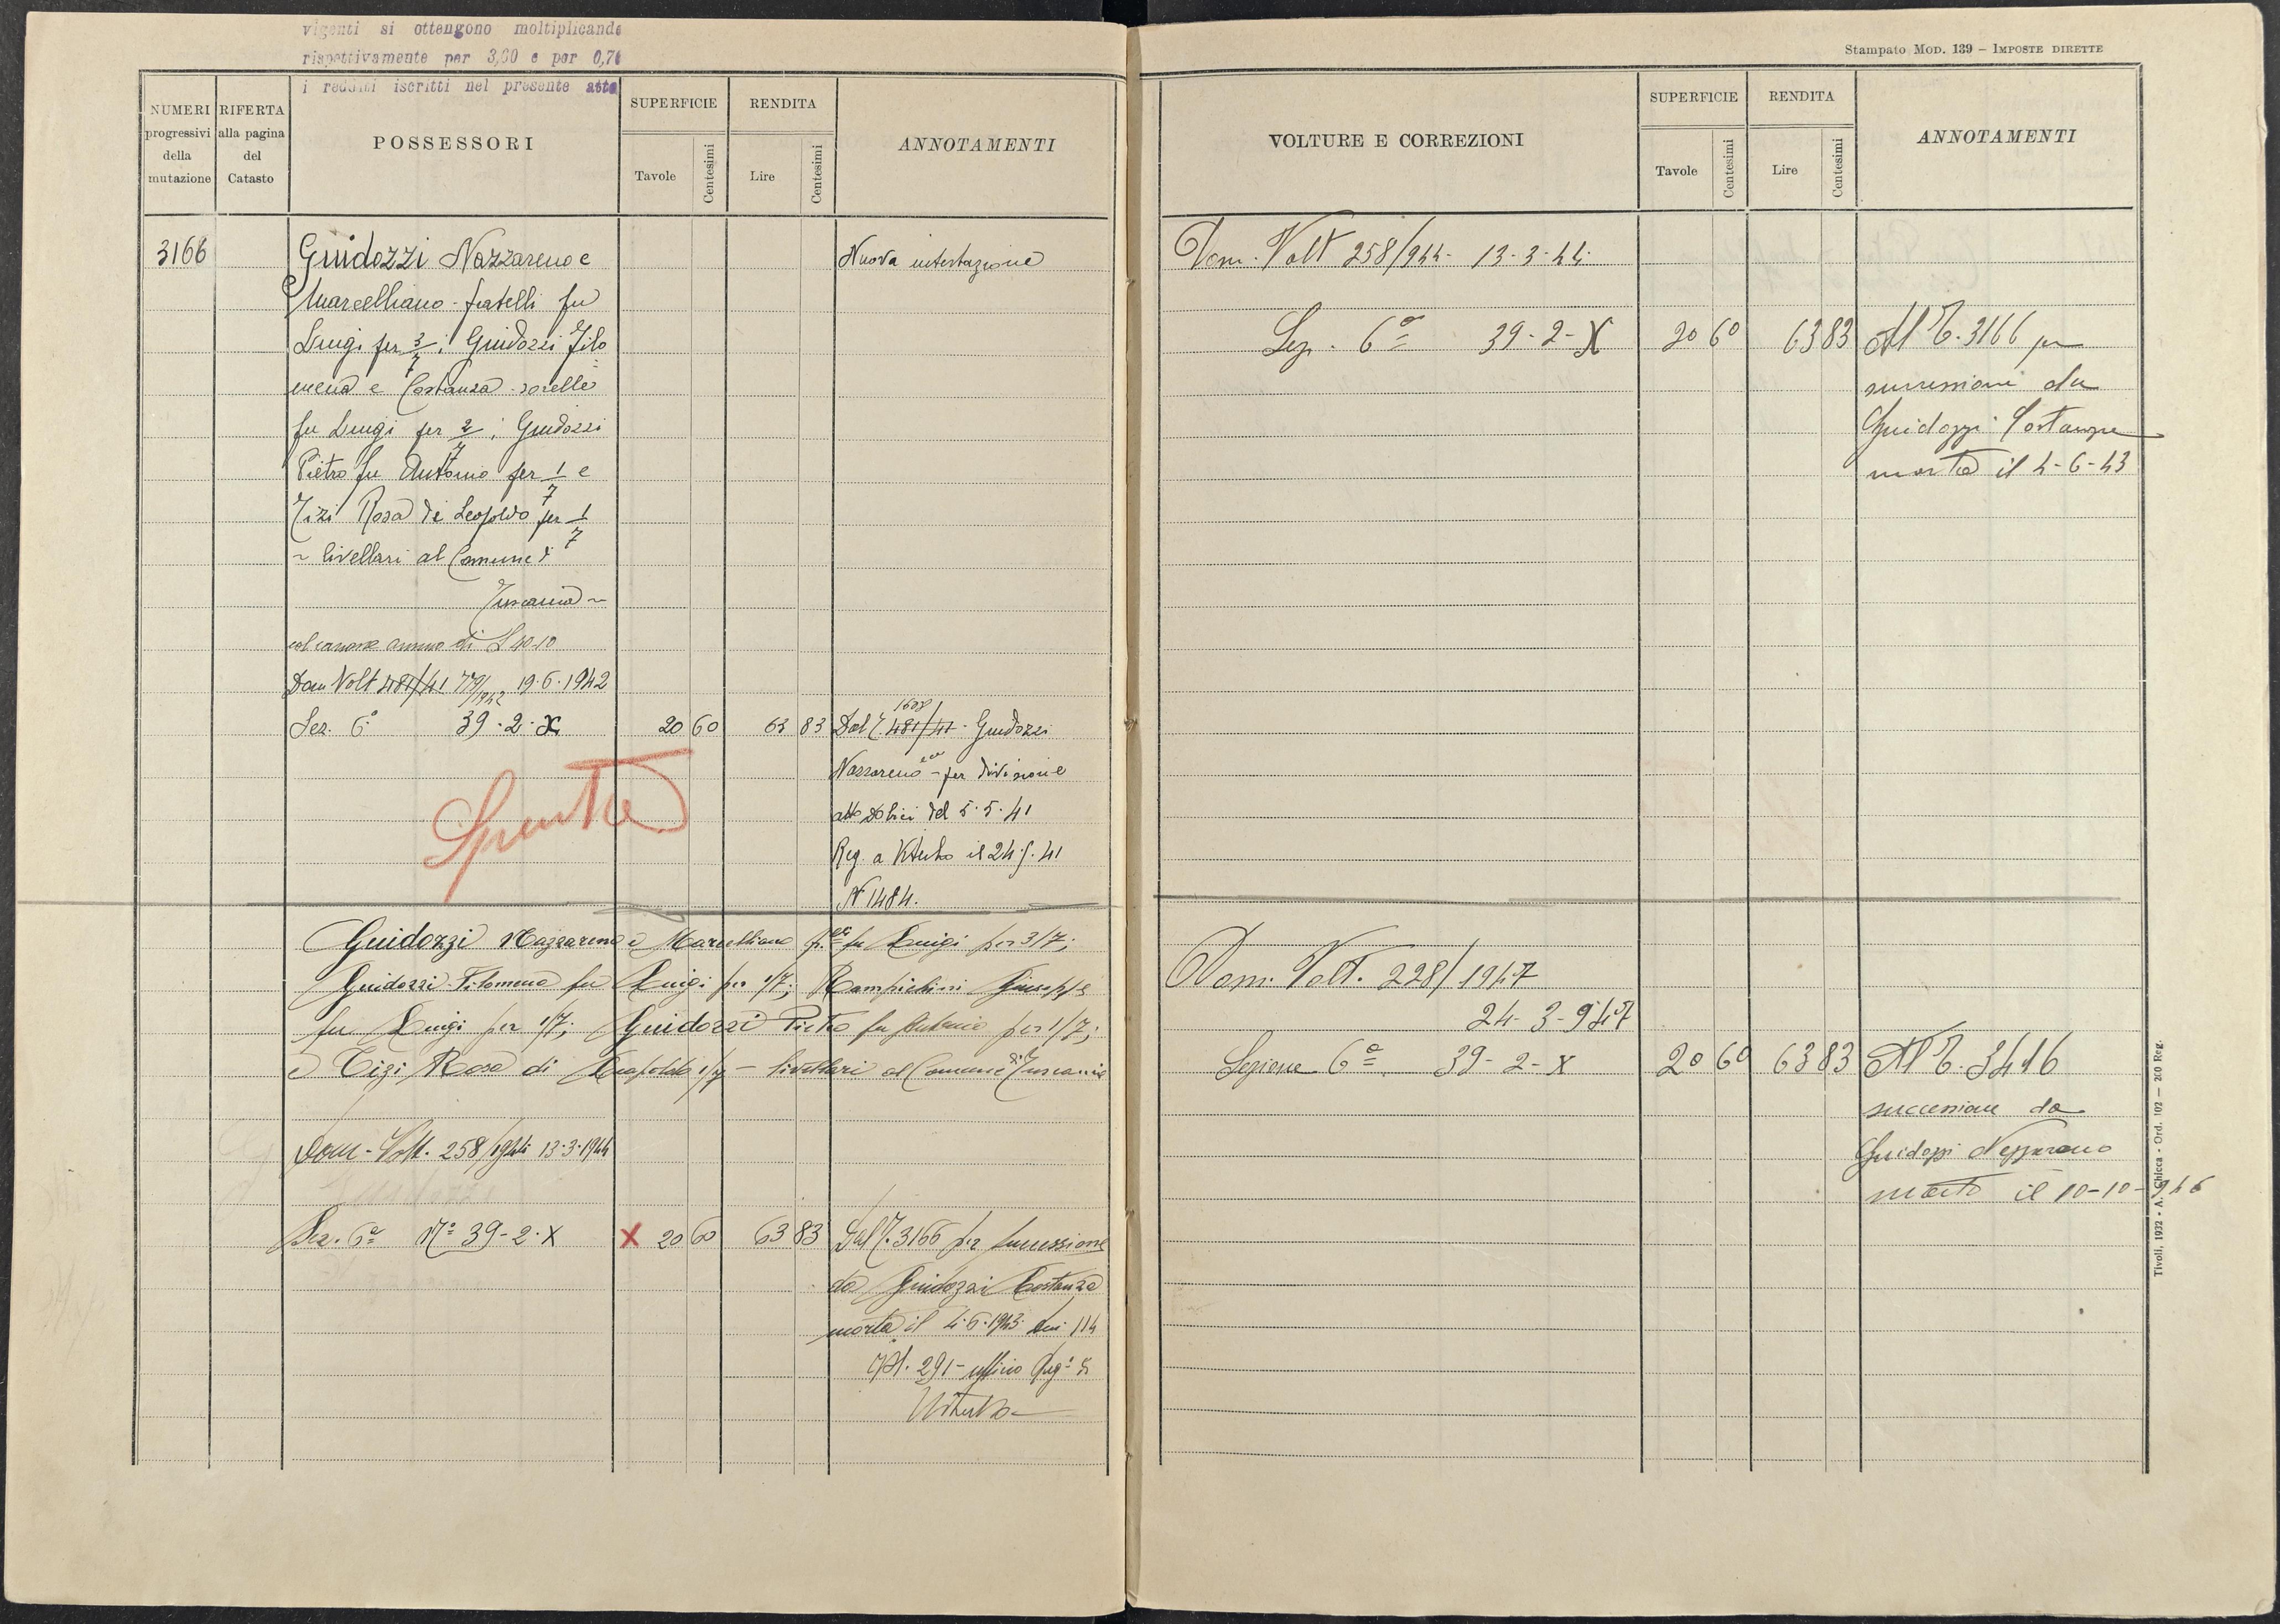 vigenti si ottengono moltiplicando
rispettivamente per 3,60 e per 0,70
i redditi iscritti nel presente atto
Stampato MOD. 139 – IMPOSTE DIRETTE
NUMERI progressivi della mutazione
RIFERTA alla pagina del Catasto
POSSESSORI
SUPERFICIE
Tavole
Centesimi
RENDITA
Lire
Centesimi
ANNOTAMENTI
VOLTURE E CORREZIONI
SUPERFICIE
Tavole
Centesimi
RENDITA
Lire
Centesimi
ANNOTAMENTI
3166
Guidozzi Nazzareno e
Marcelliano - fratelli fu
Luigi per 3/7; Guidozzi Filo
mena e Costanza - sorelle
fu Luigi per 2/7; Guidozzi
Pietro fu Antonio per 1/7 e
Tizi Rosa di Leopoldo per 1/7
~ livellari al Comune di
Tuscania ~
col canone annuo di L 40.10
Dom Volt 481/41 779/1942 19.6.1942
Sez. 6ª 39 - 2 - X 20 60 63 83
Nuova intestazione
Dal T. 481/41 1608 - Guidozzi
Nazzareno ecc - per divisione
atto Dobici del 5.5.41
Reg. a Viterbo il 24.5.41
N 1484.
Spenta
Guidozzi Nazzareno e Marcelliano fr.lli fu Luigi per 3/7;
Guidozzi Filomena fu Luigi per 1/7; Rampichini Giuseppe
fu Luigi per 1/7; Guidozzi Pietro fu Antonio per 1/7;
e Tizi Rosa di Leopoldo 1/7 - livellari al Comune di Tuscania
Dom - Volt. 258/1944 13-3-1944
Sez. 6ª Nº 39 - 2 - X X 20 60 63 83
Dal T. 3166 per successione
da Guidozzi Costanza
morta il 4.6.1943 114
291 - ufficio Reg.º di
Viterbo
Dom. Volt 258/944 - 13-3-44
Sez. 6ª 39 - 2 - X 20 60 63 83
Al T. 3166 per
successione da
Guidozzi Costanza
morta il 4-6-43
Dom. Volt. 228/1947
24-3-947
Sezione 6ª 39 - 2 - X 20 60 63 83
Al T. 3416
successione da
Guidozzi Nazzareno
morto il 10-10-946
Tivoli, 1932 - A. Chicca - Ord. 102 — 200 Reg.